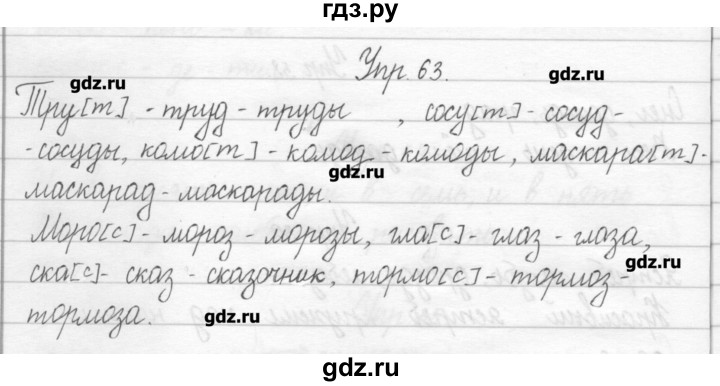 гдз.ру
Упр. 63.
gdz.ru gdz.ru
Тру[т] - труд - труды , сосу[т] - сосуд -
- сосуды, комо[т] - комод - комоды, маскара[т] -
gdz.ru
маскарад - маскарады.
Моро[с] - мороз - морозы, гла[с] - глаз - глаза,
gdz.ru
ска[с] - сказ - сказочник, тормо[с] - тормоз -
тормоза. gdz.ru
gdz.ru